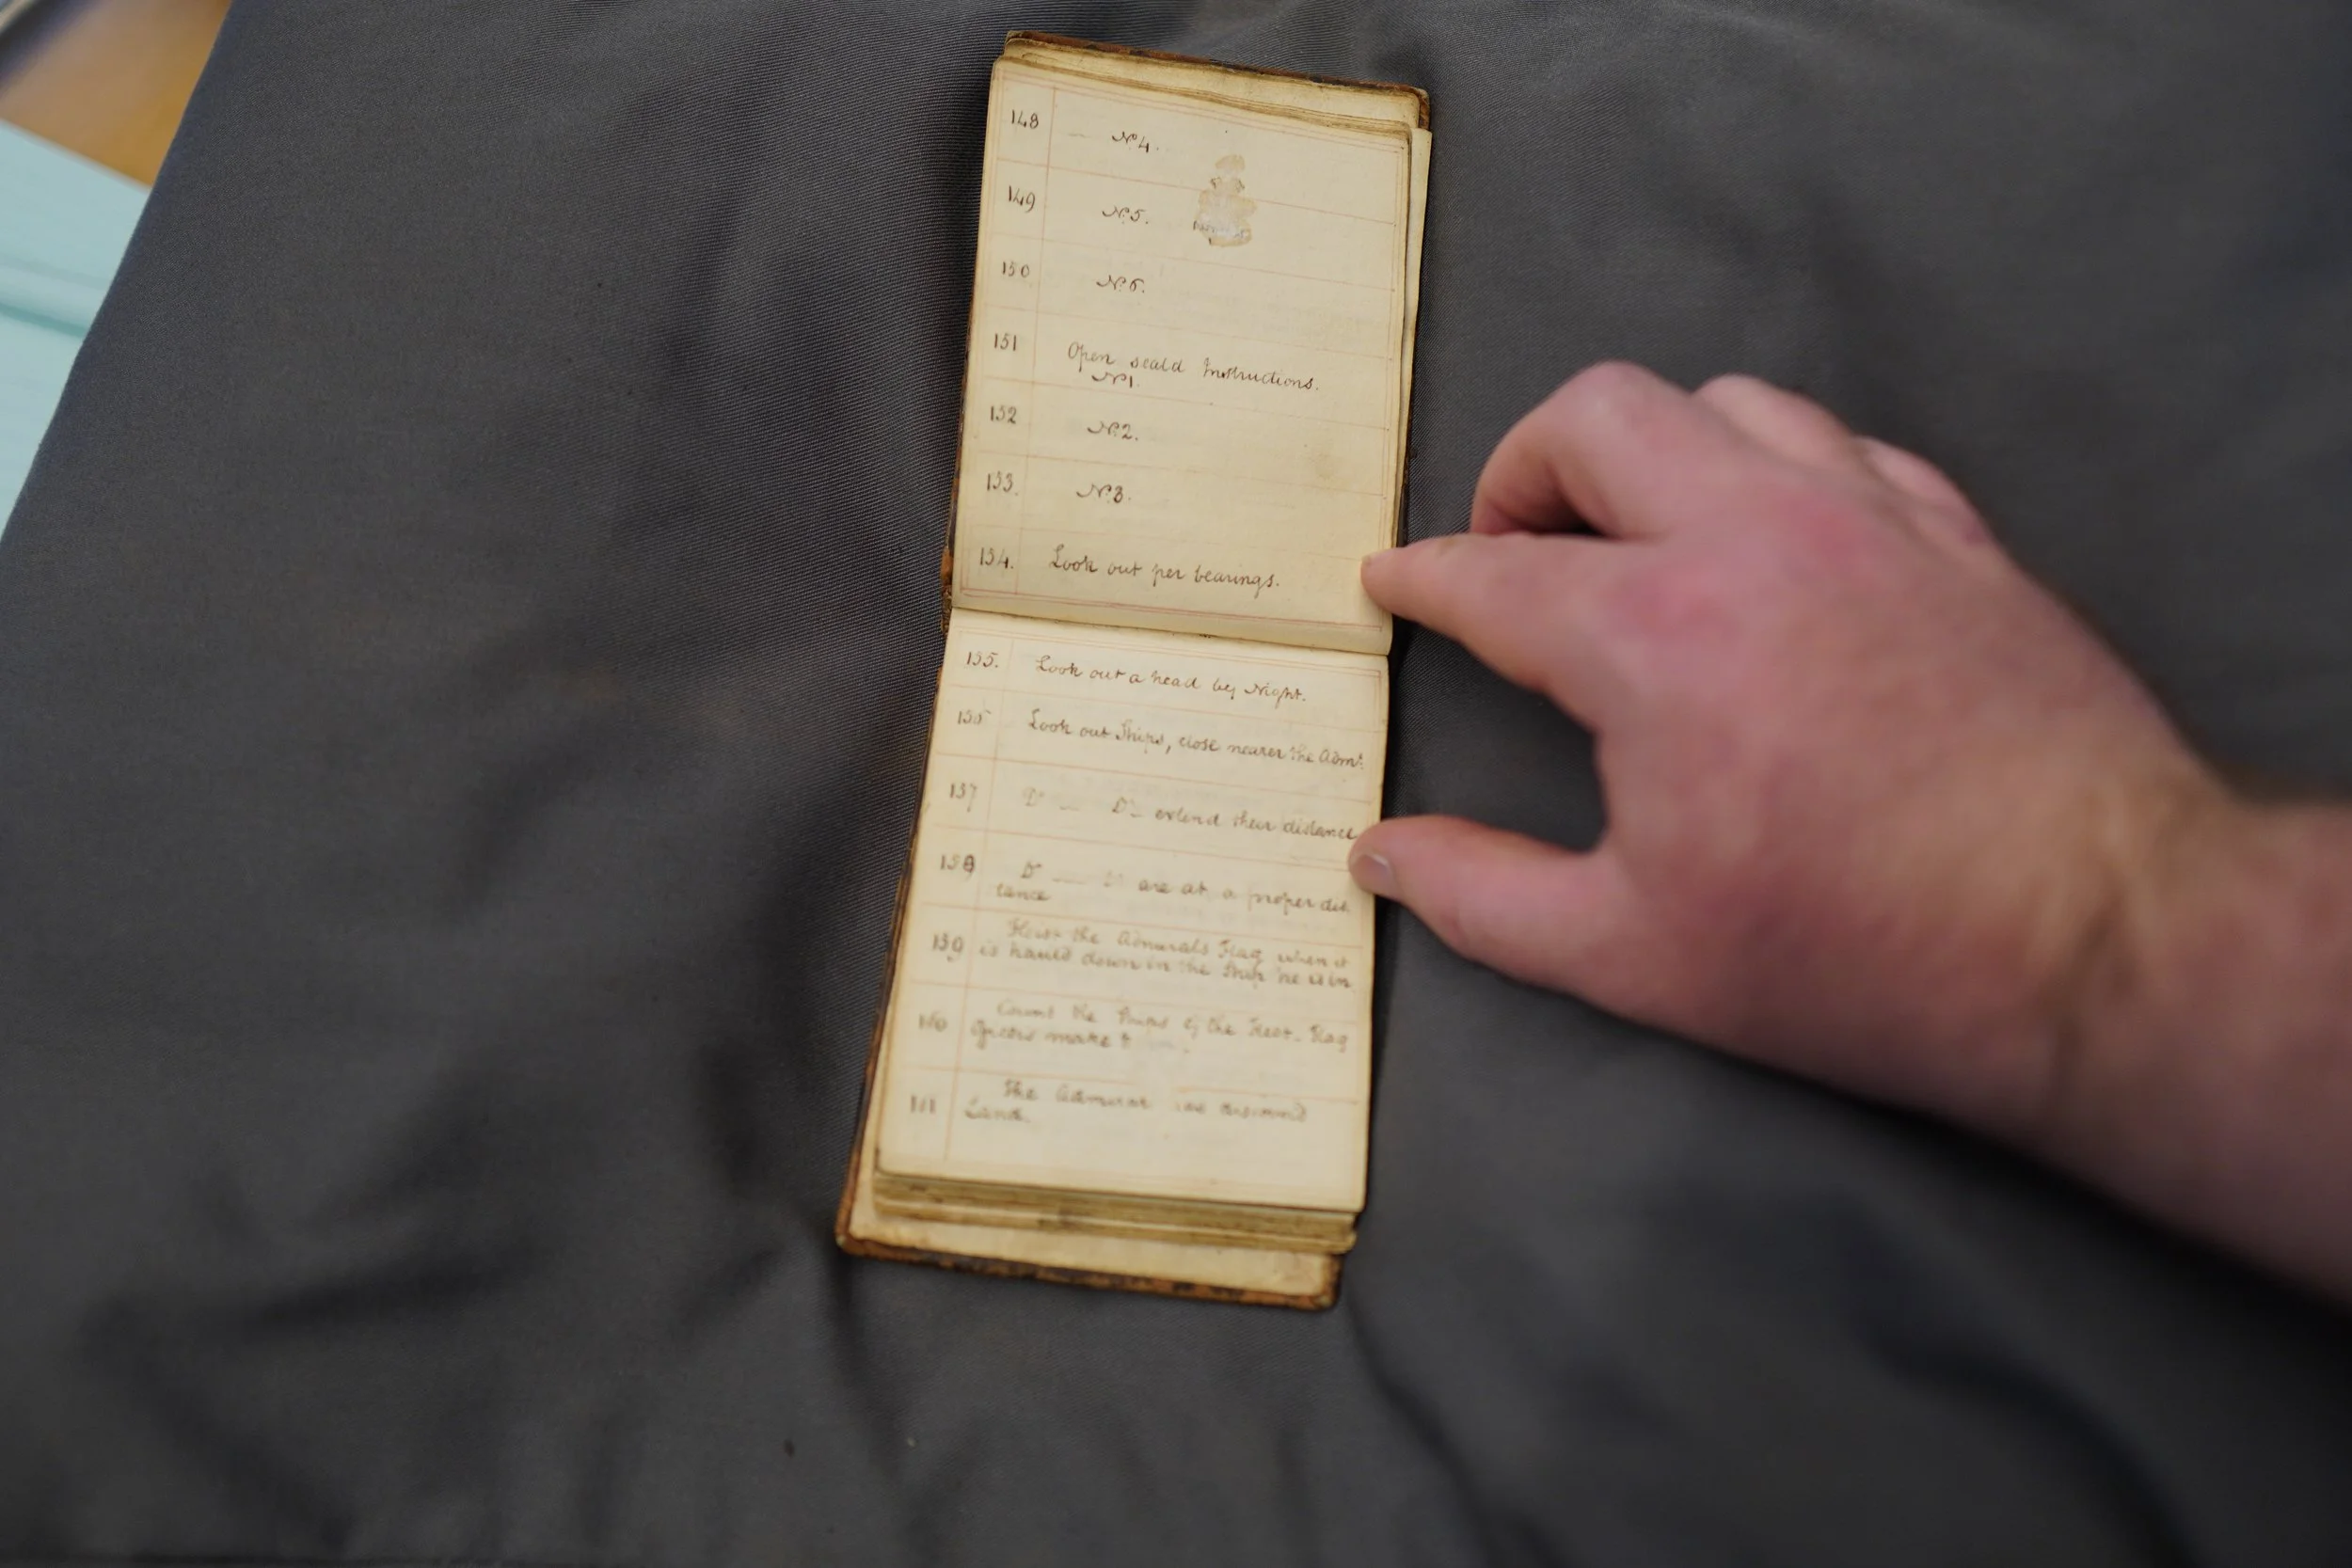 148 N.º 4.
149 N.º 5.
150 N.º 6.
151 Open seald Instructions.
N.º 1.
152 N.º 2.
153. N.º 3.
154. Look out per bearings.
155. Look out a head by Night.
156 Look out Ships, close nearer the Adm.
157 Dº — Dº extend their distance
158 Dº — Dº are at a proper dis
tance
159 Hoist the Admirals Flag when it
is hauld down in the Ship he is in
160 Count the Ships of the Fleet. Flag
Officers make
161 The Admiral has
Land.